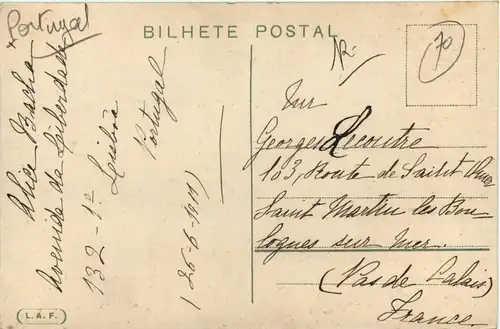 Portugal
BILHETE POSTAL
R-
70
Alice Bastia
Avenida da Liberdade
132-1º Lisboa
Portugal
25-6-1919
Sur
Georges Lecoutre
103, Route de Saint
Saint Martin les Bou
lognes sur Mer.
(Pas de Calais)
France.
L.A.F.